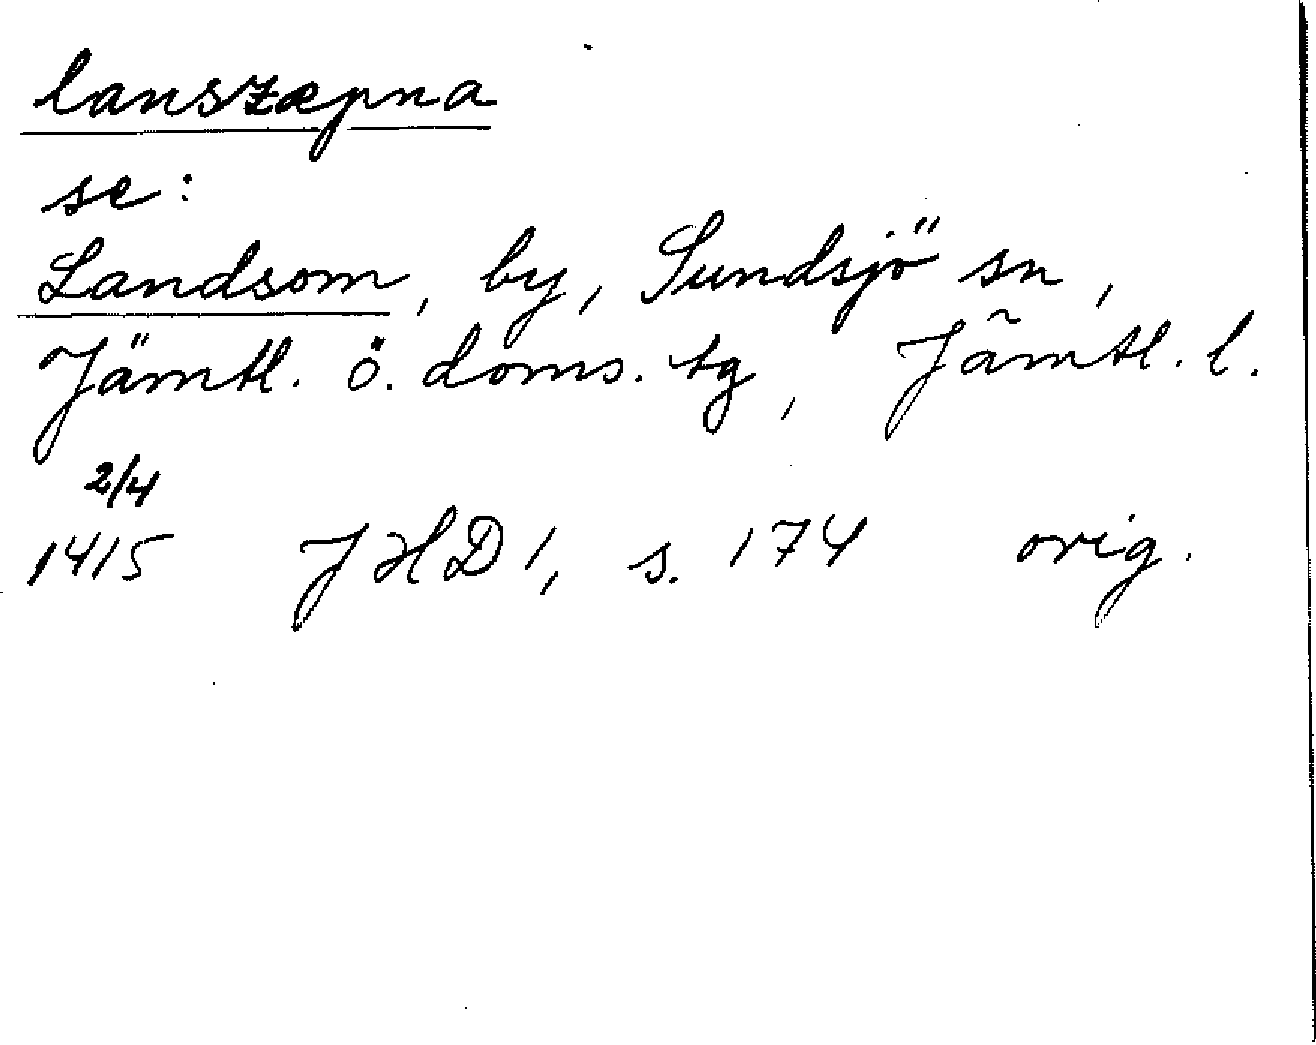 lanszæpna
se:
Landsom, by, Sundsjö sn,
Jämtl. ö. doms. tg, Jämtl. l.
2/4
1415 JHD 1, s. 174 orig.